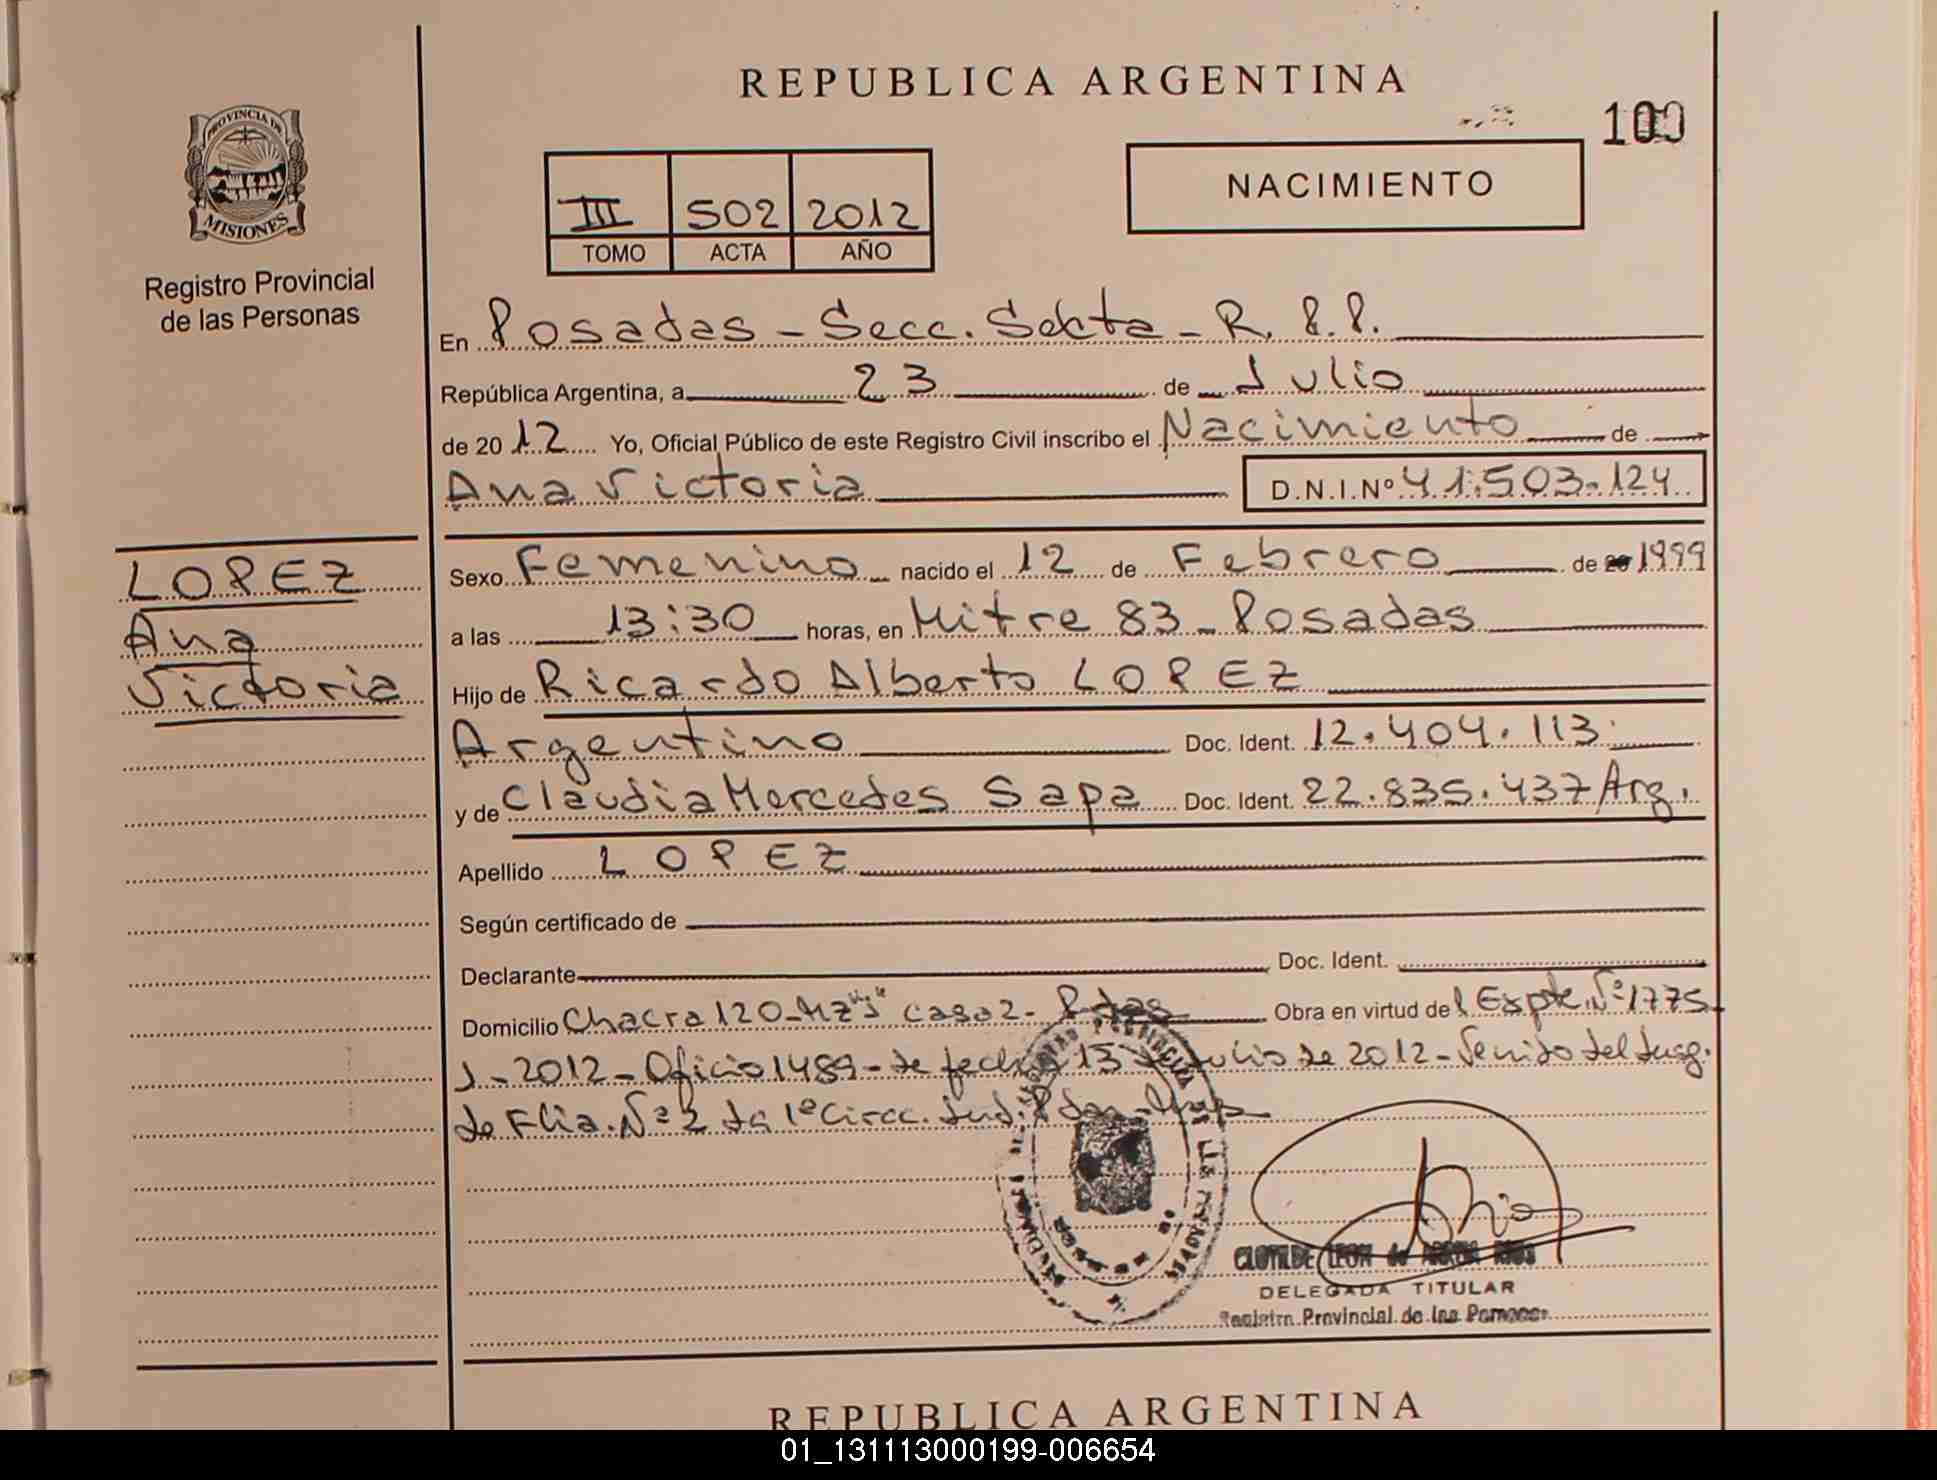 REPUBLICA ARGENTINA
100
PROVINCIA DE
MISIONES
Registro Provincial
de las Personas
III 502 2012
TOMO ACTA AÑO
NACIMIENTO
En Posadas - Secc. Sexta - R. P. P.
República Argentina, a 23 de Julio
de 2012 Yo, Oficial Público de este Registro Civil inscribo el Nacimiento de
Ana Victoria D.N.I.Nº 41.503.124
LOPEZ
Ana
Victoria
Sexo Femenino nacido el 12 de Febrero de 20 1999
a las 13:30 horas, en Mitre 83 - Posadas
Hijo de Ricardo Alberto LOPEZ
Argentino Doc. Ident. 12.404.113
y de Claudia Mercedes Sapa Doc. Ident. 22.835.437 Arg.
Apellido LOPEZ
Según certificado de
Declarante Doc. Ident.
Domicilio Chacra 120 - Mz "J" Casa 2 - Pdas Obra en virtud del Expte. Nº 1775
J - 2012 - Oficio 1489 - de fecha 13 de Julio de 2012 - Venido del Juzg.
de Flia. Nº 2 da 1º Circc. Jud. Pdas
CLOTILDE LEON de
DELEGADA TITULAR
Registro Provincial de las Personas
REPUBLICA ARGENTINA
01_131113000199-006654